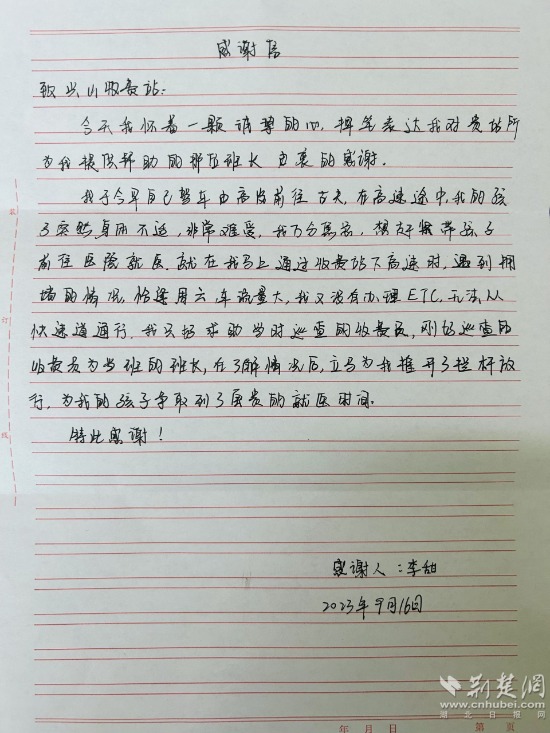 感谢信
致兴山收费站:
今天我怀着一颗诚挚的心,择笔表达我对贵站所
为我提供帮助的那位班长 由衷的感谢.
我于今早自己驾车由高岚前往古夫,在高速途中,我的孩
子突然身体不适,非常难受,我万分焦急,想赶紧带孩子
前往医院就医.就在我马上通过收费站下高速时,遇到拥
堵的情况,恰逢周六,车流量大,我又没有办理ETC,无法从
快速道通行.我只好求助当时巡查的收费员,刚好巡查的
收费员为当班的班长,在了解情况后,立马为我推开了栏杆放
行,为我的孩子争取到了宝贵的就医时间.
特此感谢!
感谢人:李甜
2023年9月16日
装
订
线
荆楚网
www.cnhubei.com
湖北日报网
年 月 日
第 页